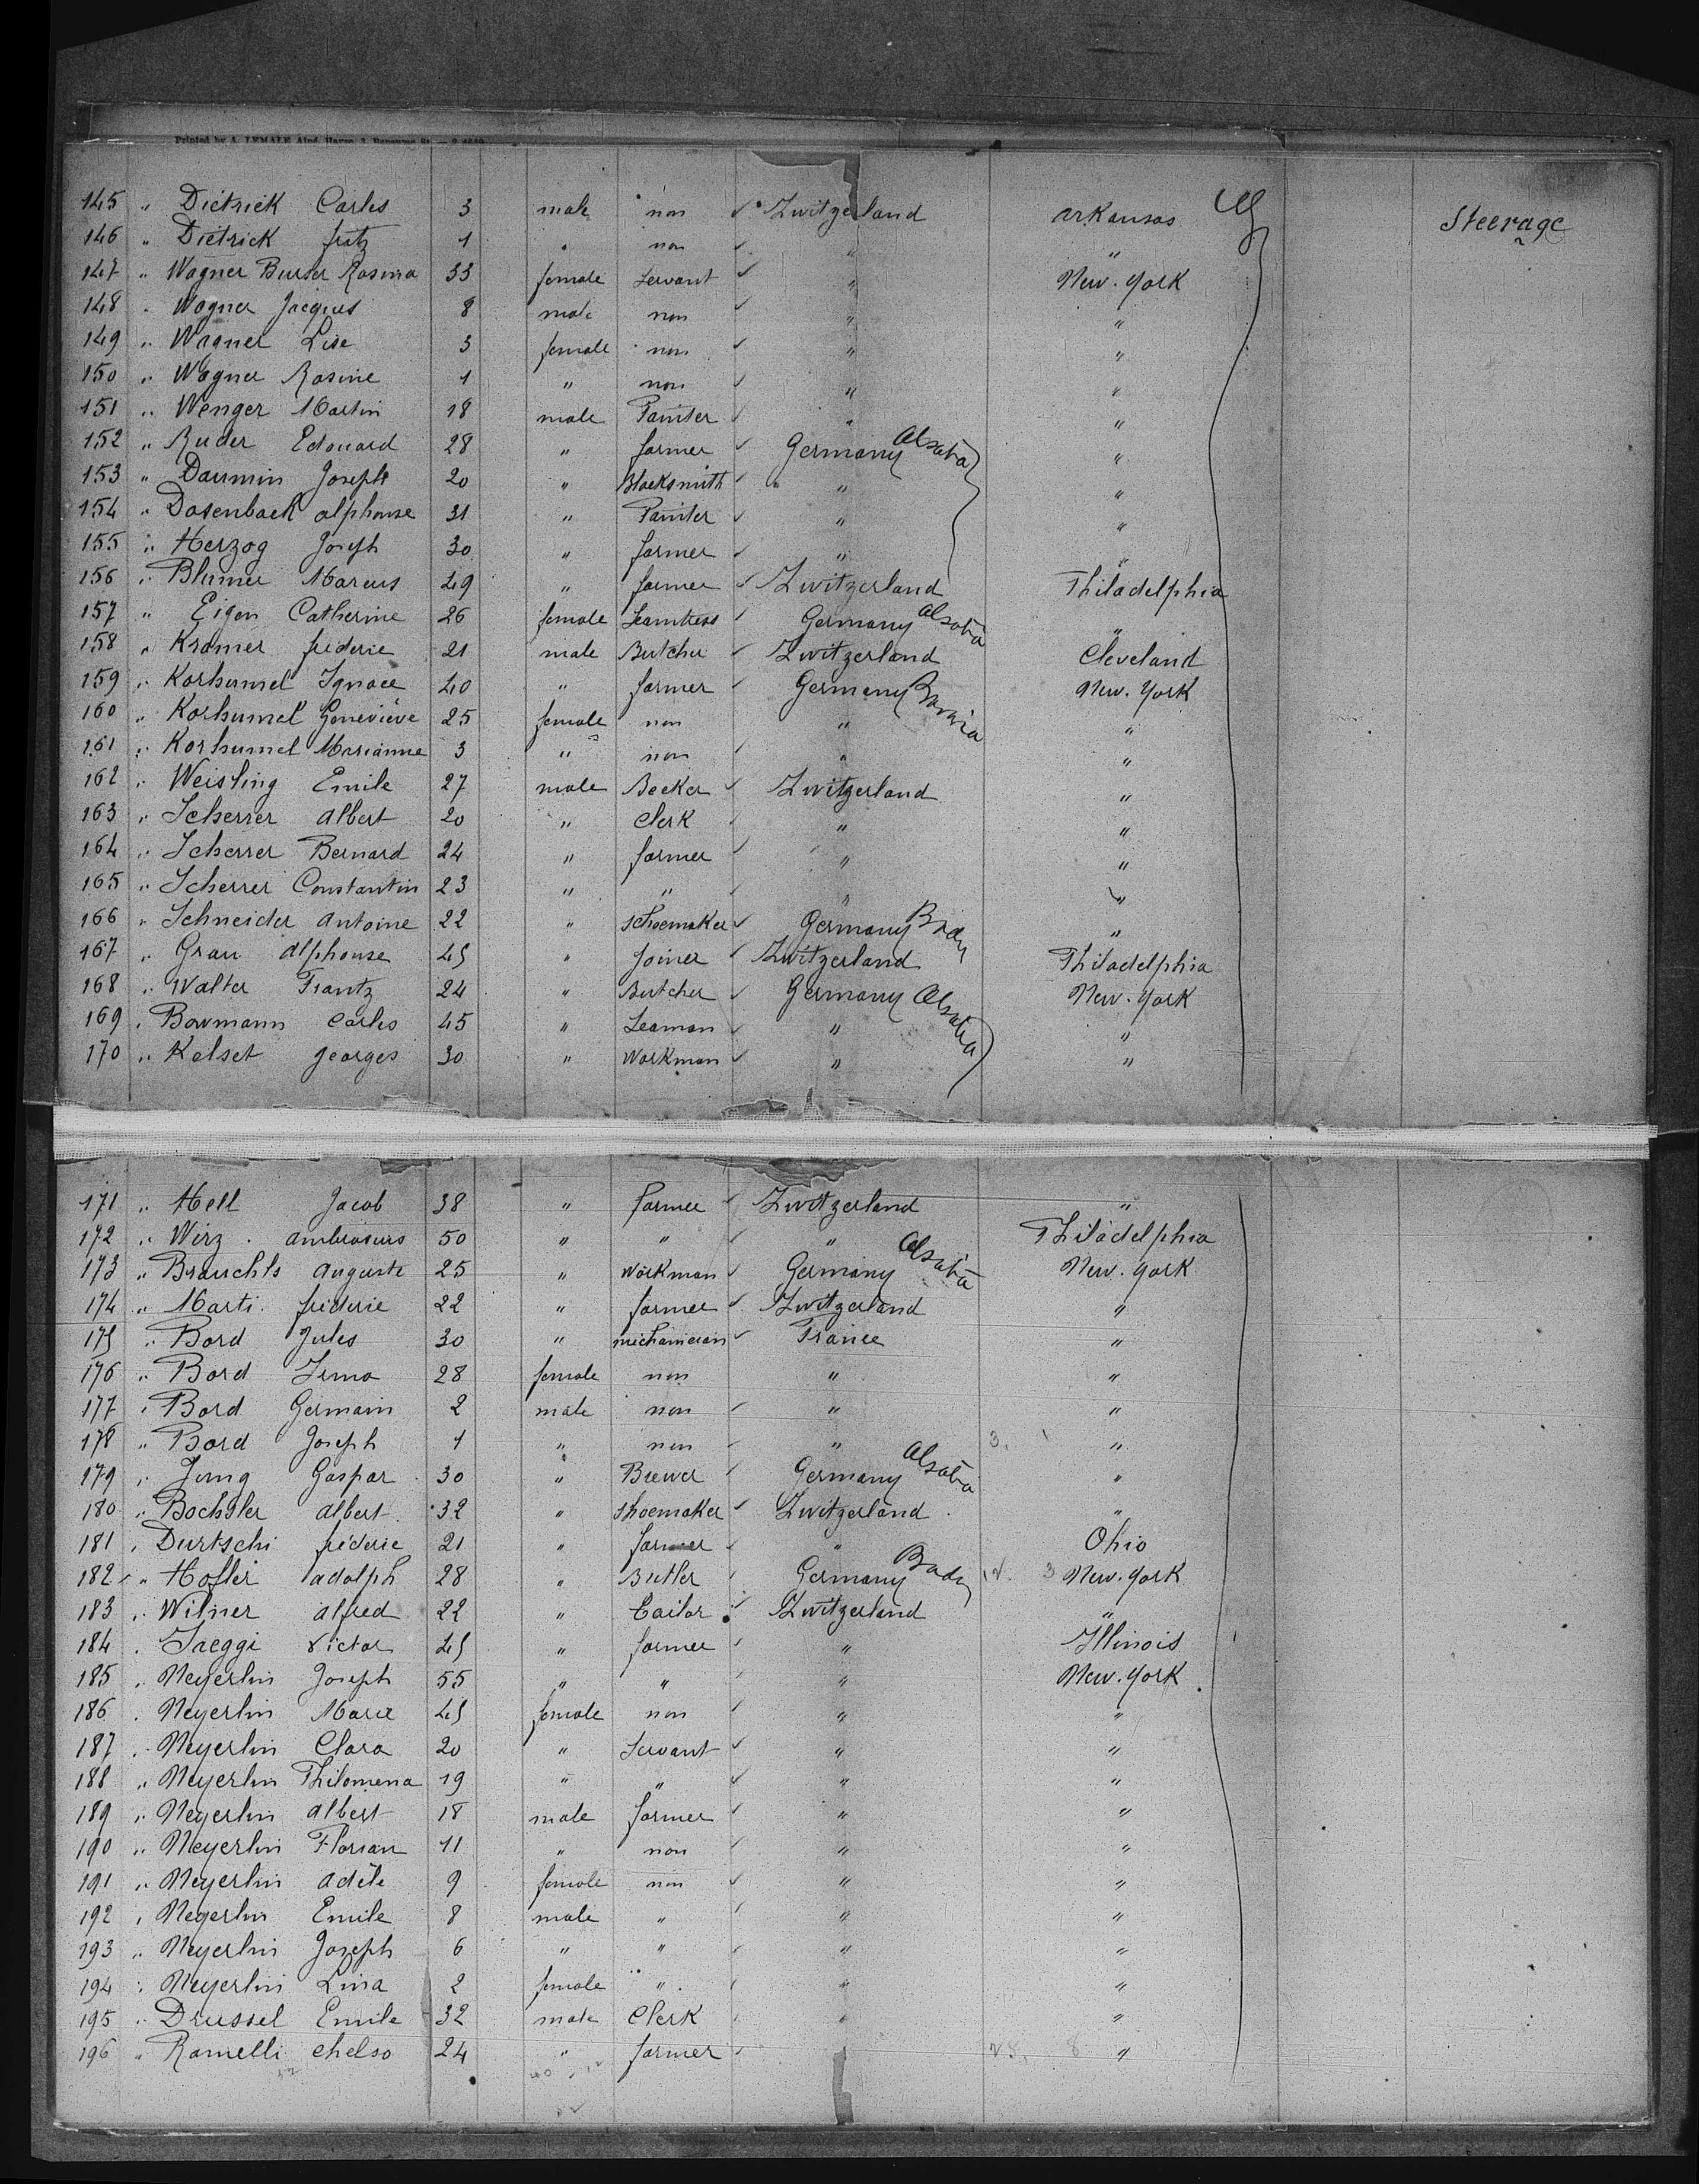 Printed by A. LEMALE Aîné, Havre
145 " Dietrick Carles 3 male non Zwitzerland arkansas Steerage
146 " Dietrick fritz 1 " non " "
147 " Wagner Burser Rosina 33 female Servant " New. York
148 " Wagner Jacques 8 male non " "
149 " Wagner Lise 3 female non " "
150 " Wagner Rosine 1 " non " "
151 " Wenger Martin 18 male Painter " "
152 " Ruder Edouard 28 " farmer Germany Alsatia "
153 " Daumin Joseph 20 " Blacksmith " "
154 " Dosenback alphonse 31 " Painter " "
155 " Herzog Joseph 30 " farmer " "
156 " Blumer Marcus 49 " farmer Zwitzerland Philadelphia
157 " Eigen Catherine 26 female Seamtress Germany Alsatia "
158 " Kramer frederic 21 male Butcher Zwitzerland Cleveland
159 " Korhumel Ignace 40 " farmer Germany Bavaria New. York
160 " Korhumel Geneviève 25 female non " "
161 " Korhumel Marianne 3 " non " "
162 " Weisling Emile 27 male Becker Zwitzerland "
163 " Scherrer albert 20 " Clerk " "
164 " Scherrer Bernard 24 " farmer " "
165 " Scherrer Constantin 23 " " " "
166 " Schneider antoine 22 " schoemaker Germany Baden "
167 " Grau alphonse 45 " Joiner Zwitzerland Philadelphia
168 " Walter Frantz 24 " Butcher Germany Alsatia New. York
169 " Bowmann Carles 45 " Seaman " "
170 " Kelset georges 30 " Workman " "
171 " Hell Jacob 38 " farmer Zwitzerland "
172 " Wirz ambrosius 50 " " " Philadelphia
173 " Brauchts auguste 25 " Workman Germany Alsatia New. york
174 " Marti frederic 22 " farmer Zwitzerland "
175 " Bord Jules 30 " mechanician France "
176 " Bord Irma 28 female non " "
177 " Bord Germain 2 male non " "
178 " Bord Joseph 1 " non " "
179 " Jung Gaspar 30 " Brewer Germany Alsatia "
180 " Bochsler albert 32 " Shoemaker Zwitzerland "
181 " Durtschi frederic 21 " farmer " Ohio
182 " Hofler adolph 28 " Butler Germany Baden New. York
183 " Wilner alfred 22 " tailor Zwitzerland "
184 " Jaeggi victor 45 " farmer " Illinois
185 " Neyerlin Joseph 55 " " " New. York
186 " Neyerlin Marie 45 female non " "
187 " Neyerlin Clara 20 " Servant " "
188 " Neyerlin Philomena 19 " " " "
189 " Neyerlin albert 18 male farmer " "
190 " Neyerlin Florian 11 " non " "
191 " Neyerlin adèle 9 female non " "
192 " Neyerlin Emile 8 male " " "
193 " Neyerlin Joseph 6 " " " "
194 " Neyerlin Lina 2 female " " "
195 " Drussel Emile 32 male Clerk " "
196 " Ramelli chelso 24 " farmer "